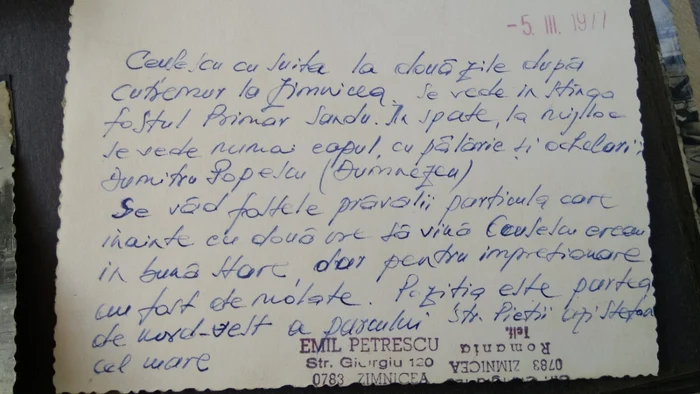 - 5. III. 1977
Ceulescu cu suita la două zile după
cutremur la Zimnicea. Se vede in stinga
fostul Primar Sandu. In spate, la mijloc
se vede numai capul, cu pălărie și ochelari
Dumitru Popescu (Dumnezeu)
Se văd fostele prăvălii particula care
inainte cu două ore să vină Ceulescu erau
in bună stare, dar pentru impreționare
au fost demolate. Poziția este partea
de nord-vest a parcului str. Pieții Ștefan
cel mare
EMIL PETRESCU
Str. Giurgiu 120
0783 ZIMNICEA
0783 ZIMNICEA
Romania
Tell.